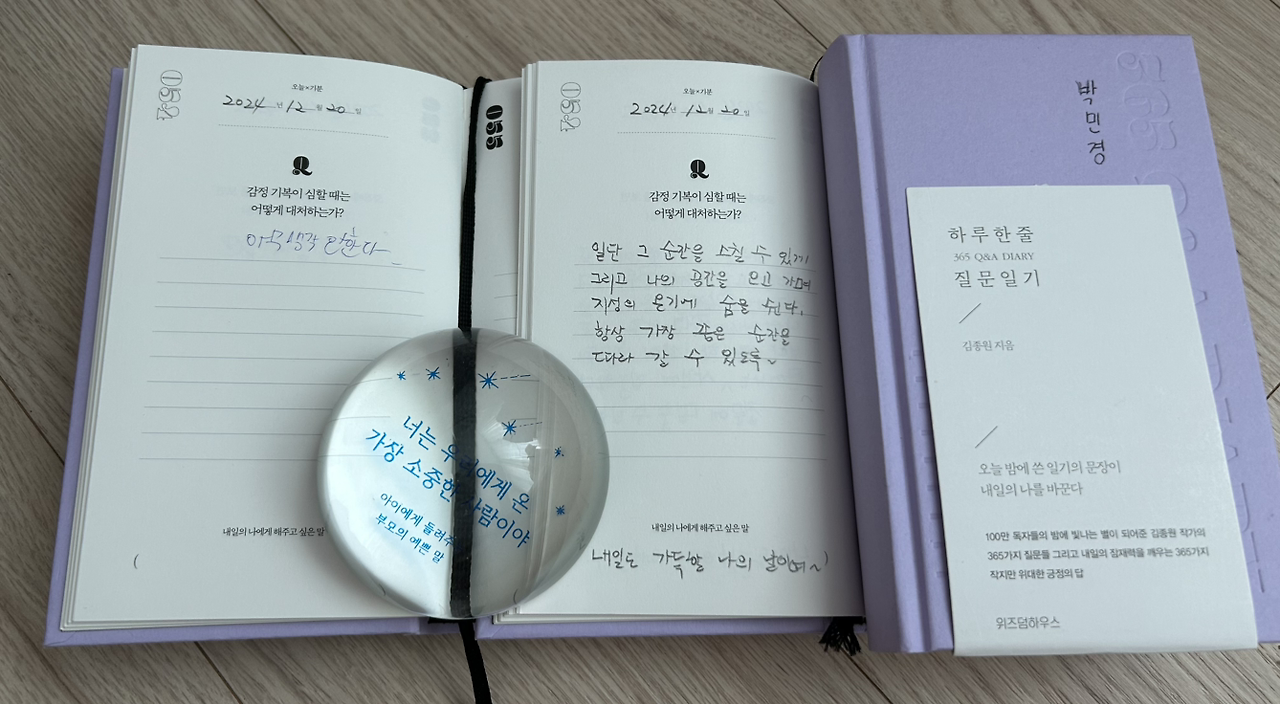 054
오늘×기분
2024년 12월 20일
Q
감정 기복이 심할 때는
어떻게 대처하는가?
한다
내일의 나에게 해주고 싶은 말
(
055
054
오늘×기분
2024년 12월 20일
Q
감정 기복이 심할 때는
어떻게 대처하는가?
일단 그 순간을 스칠 수 있게
그리고 나의 공간을 오고 가며
지성의 온기에 숨을 쉰다.
항상 가장 좋은 순간을
따라 갈 수 있도록~
내일의 나에게 해주고 싶은 말
내일도 가득할 나의 날이여~)
너는 우리에게 온
가장 소중한 사람이야
아이에게 들려주
부모의 예쁜 말
박민경
하루 한 줄
365 Q&A DIARY
질문 일기
김종원 지음
오늘 밤에 쓴 일기의 문장이
내일의 나를 바꾼다
100만 독자들의 밤에 빛나는 별이 되어준 김종원 작가의
365가지 질문들 그리고 내일의 잠재력을 깨우는 365가지
작지만 위대한 긍정의 답
위즈덤하우스